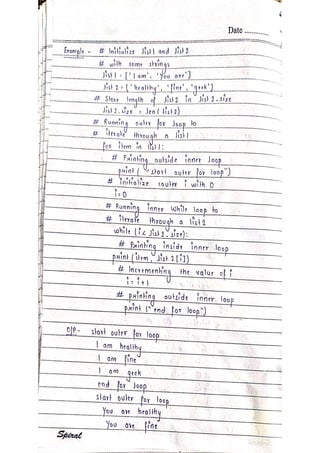 Date ............
Example - # Initialize list1 and list2
# with some strings
list1 = ['I am', 'You are']
list2 = ['healthy', 'fine', 'geek']
# Store length of list2 in list2-size
list2_size = len(list2)
# Running outer for loop to
# iterate through a list1
for item in list1:
# Printing outside inner loop
print("start outer for loop")
# initialize counter i with 0
i=0
# Running inner While loop to
# iterate through a list2
while (i< list2_size):
# Printing inside inner loop
print (item, list2[i])
# Incrementing the value of i
i = i+1
# printing outside inner loop
print ("end for loop")
O/P- start outer for loop
I am healthy
I am fine
I am geek
end for loop
start outer for loop
You are healthy
You are fine
Spiral